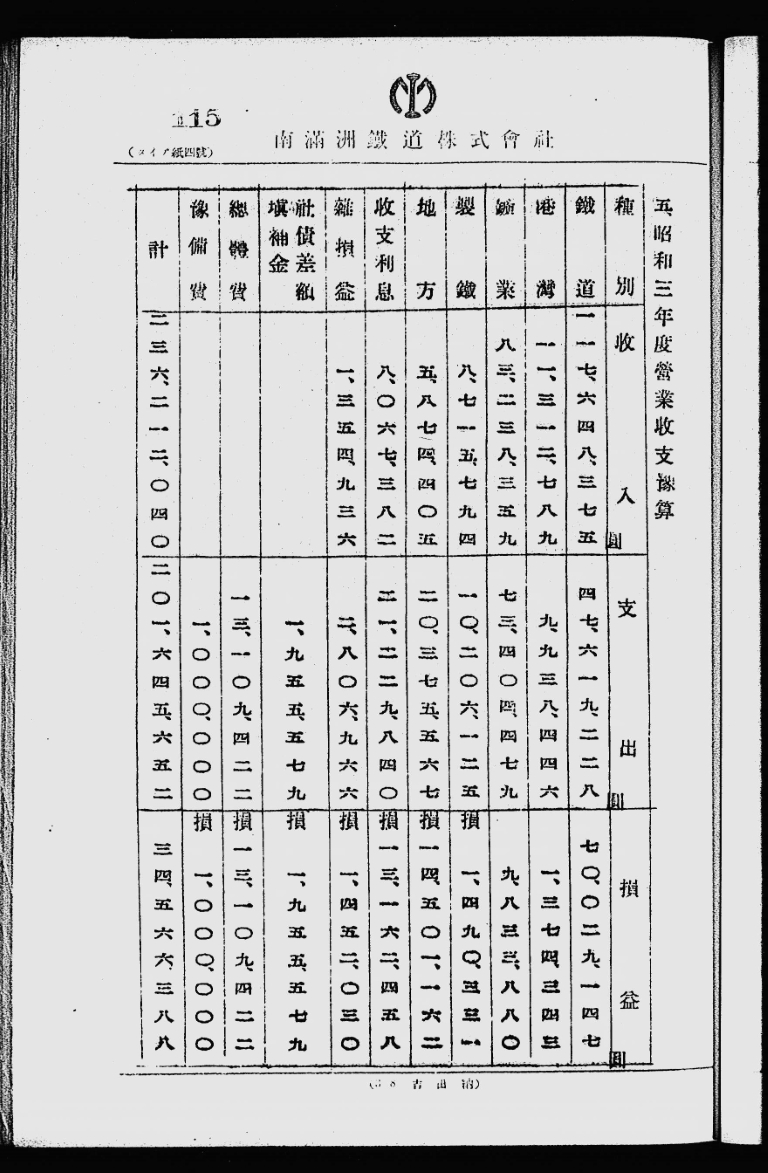 115
南滿洲鐵道株式會社
(タイプ紙四號)
五、昭和三年度營業收支豫算
種別 收入圓 支出圓 損益圓
鐵道 一一七、六四八、三七五 四七、六一九、二二八 七〇、〇二九、一四七
港灣 一一、三一二、七八九 九、九三八、四四六 一、三七四、三四三
鑛業 八三、二三八、三五九 七三、四〇四、四七九 九、八三三、八八〇
製鐵 八、七一五、七九四 一〇、二〇六、一二五 損 一、四九〇、三三一
地方 五、八七四、四〇五 二〇、三七五、五六七 損 一四、五〇一、一六二
收支利息 八、〇六七、三八二 二一、二二九、八四〇 損 一三、一六二、四五八
雜損益 一、三五四、九三六 二、八〇六、九六六 損 一、四五二、〇三〇
社債差額塡補金 一、九五五、五七九 損 一、九五五、五七九
總體費 一三、一〇九、四二二 損 一三、一〇九、四二二
豫備費 一、〇〇〇、〇〇〇 損 一、〇〇〇、〇〇〇
計 二三六、二一二、〇四〇 二〇一、六四五、六五二 三四、五六六、三八八